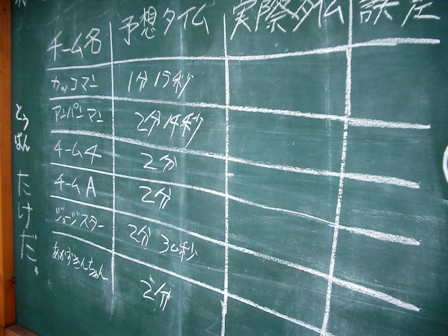 チーム名 予想タイム 実際タイム 誤差
カッコマン 1分15秒
アンパンマン 2分14秒
チーム4 2分
チームA 2分
2分30秒
2分
とうばん たけだ。